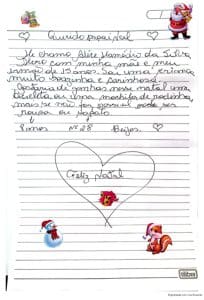 ♡ Querido papai Noel ♡
Me chamo Alice Hamédio da Silva
Moro com minha mãe e meu
irmão de 15 anos. Sou uma criança
muito boazinha e carinhosa.
Gostaria de ganhar nesse natal uma
bicicleta ou uma mochila de rodinha,
mas se não for possível pode ser
roupa ou sapato.
8 anos Nº 28 Beijos. ♡
Feliz Natal
tilibra